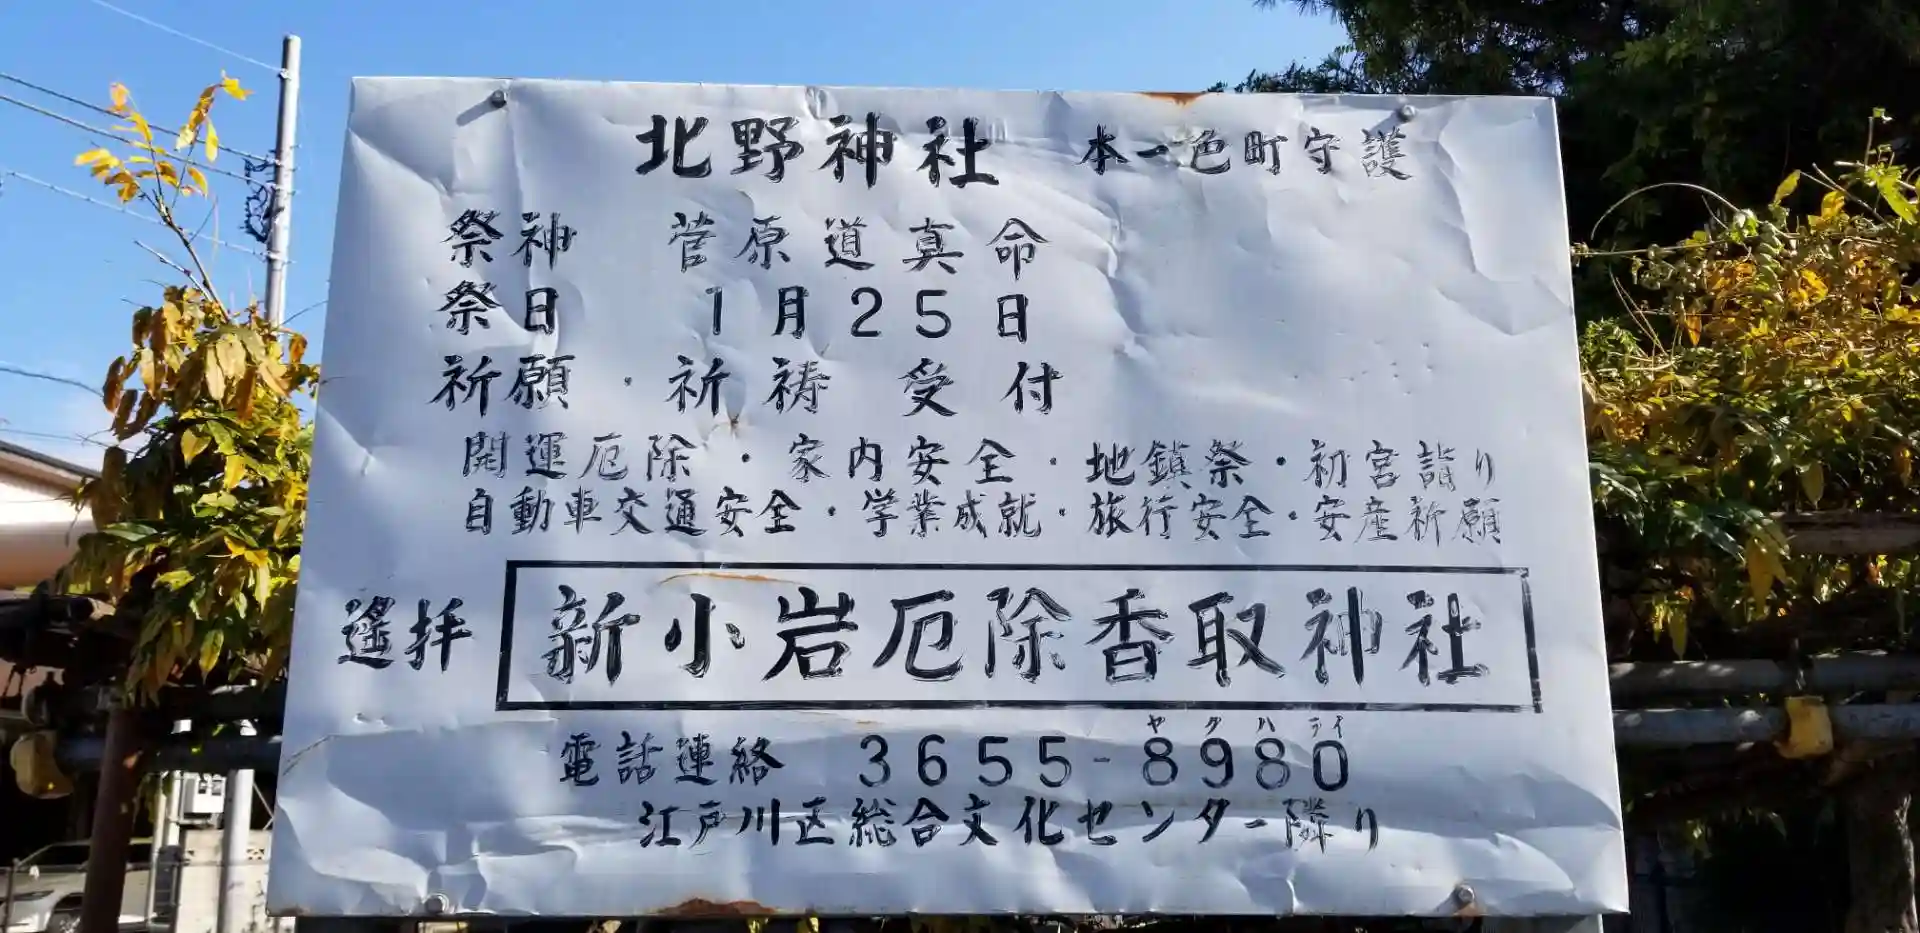 北野神社 本一色町守護
祭神 菅原道真命
祭日 1月25日
祈願・祈祷 受付
開運厄除・家内安全・地鎮祭・初宮詣り
自動車交通安全・学業成就・旅行安全・安産祈願
遙拝 新小岩厄除香取神社
ヤクハライ
電話連絡 3655-8980
江戸川区総合文化センター隣り